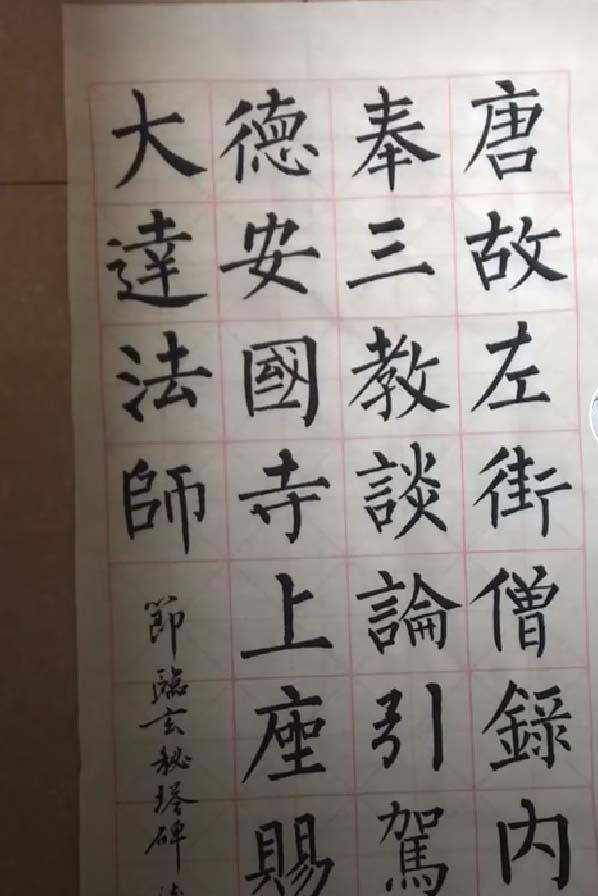 唐故左街僧錄內
奉三教談論引駕
德安國寺上座賜
大達法師
節臨玄秘塔碑